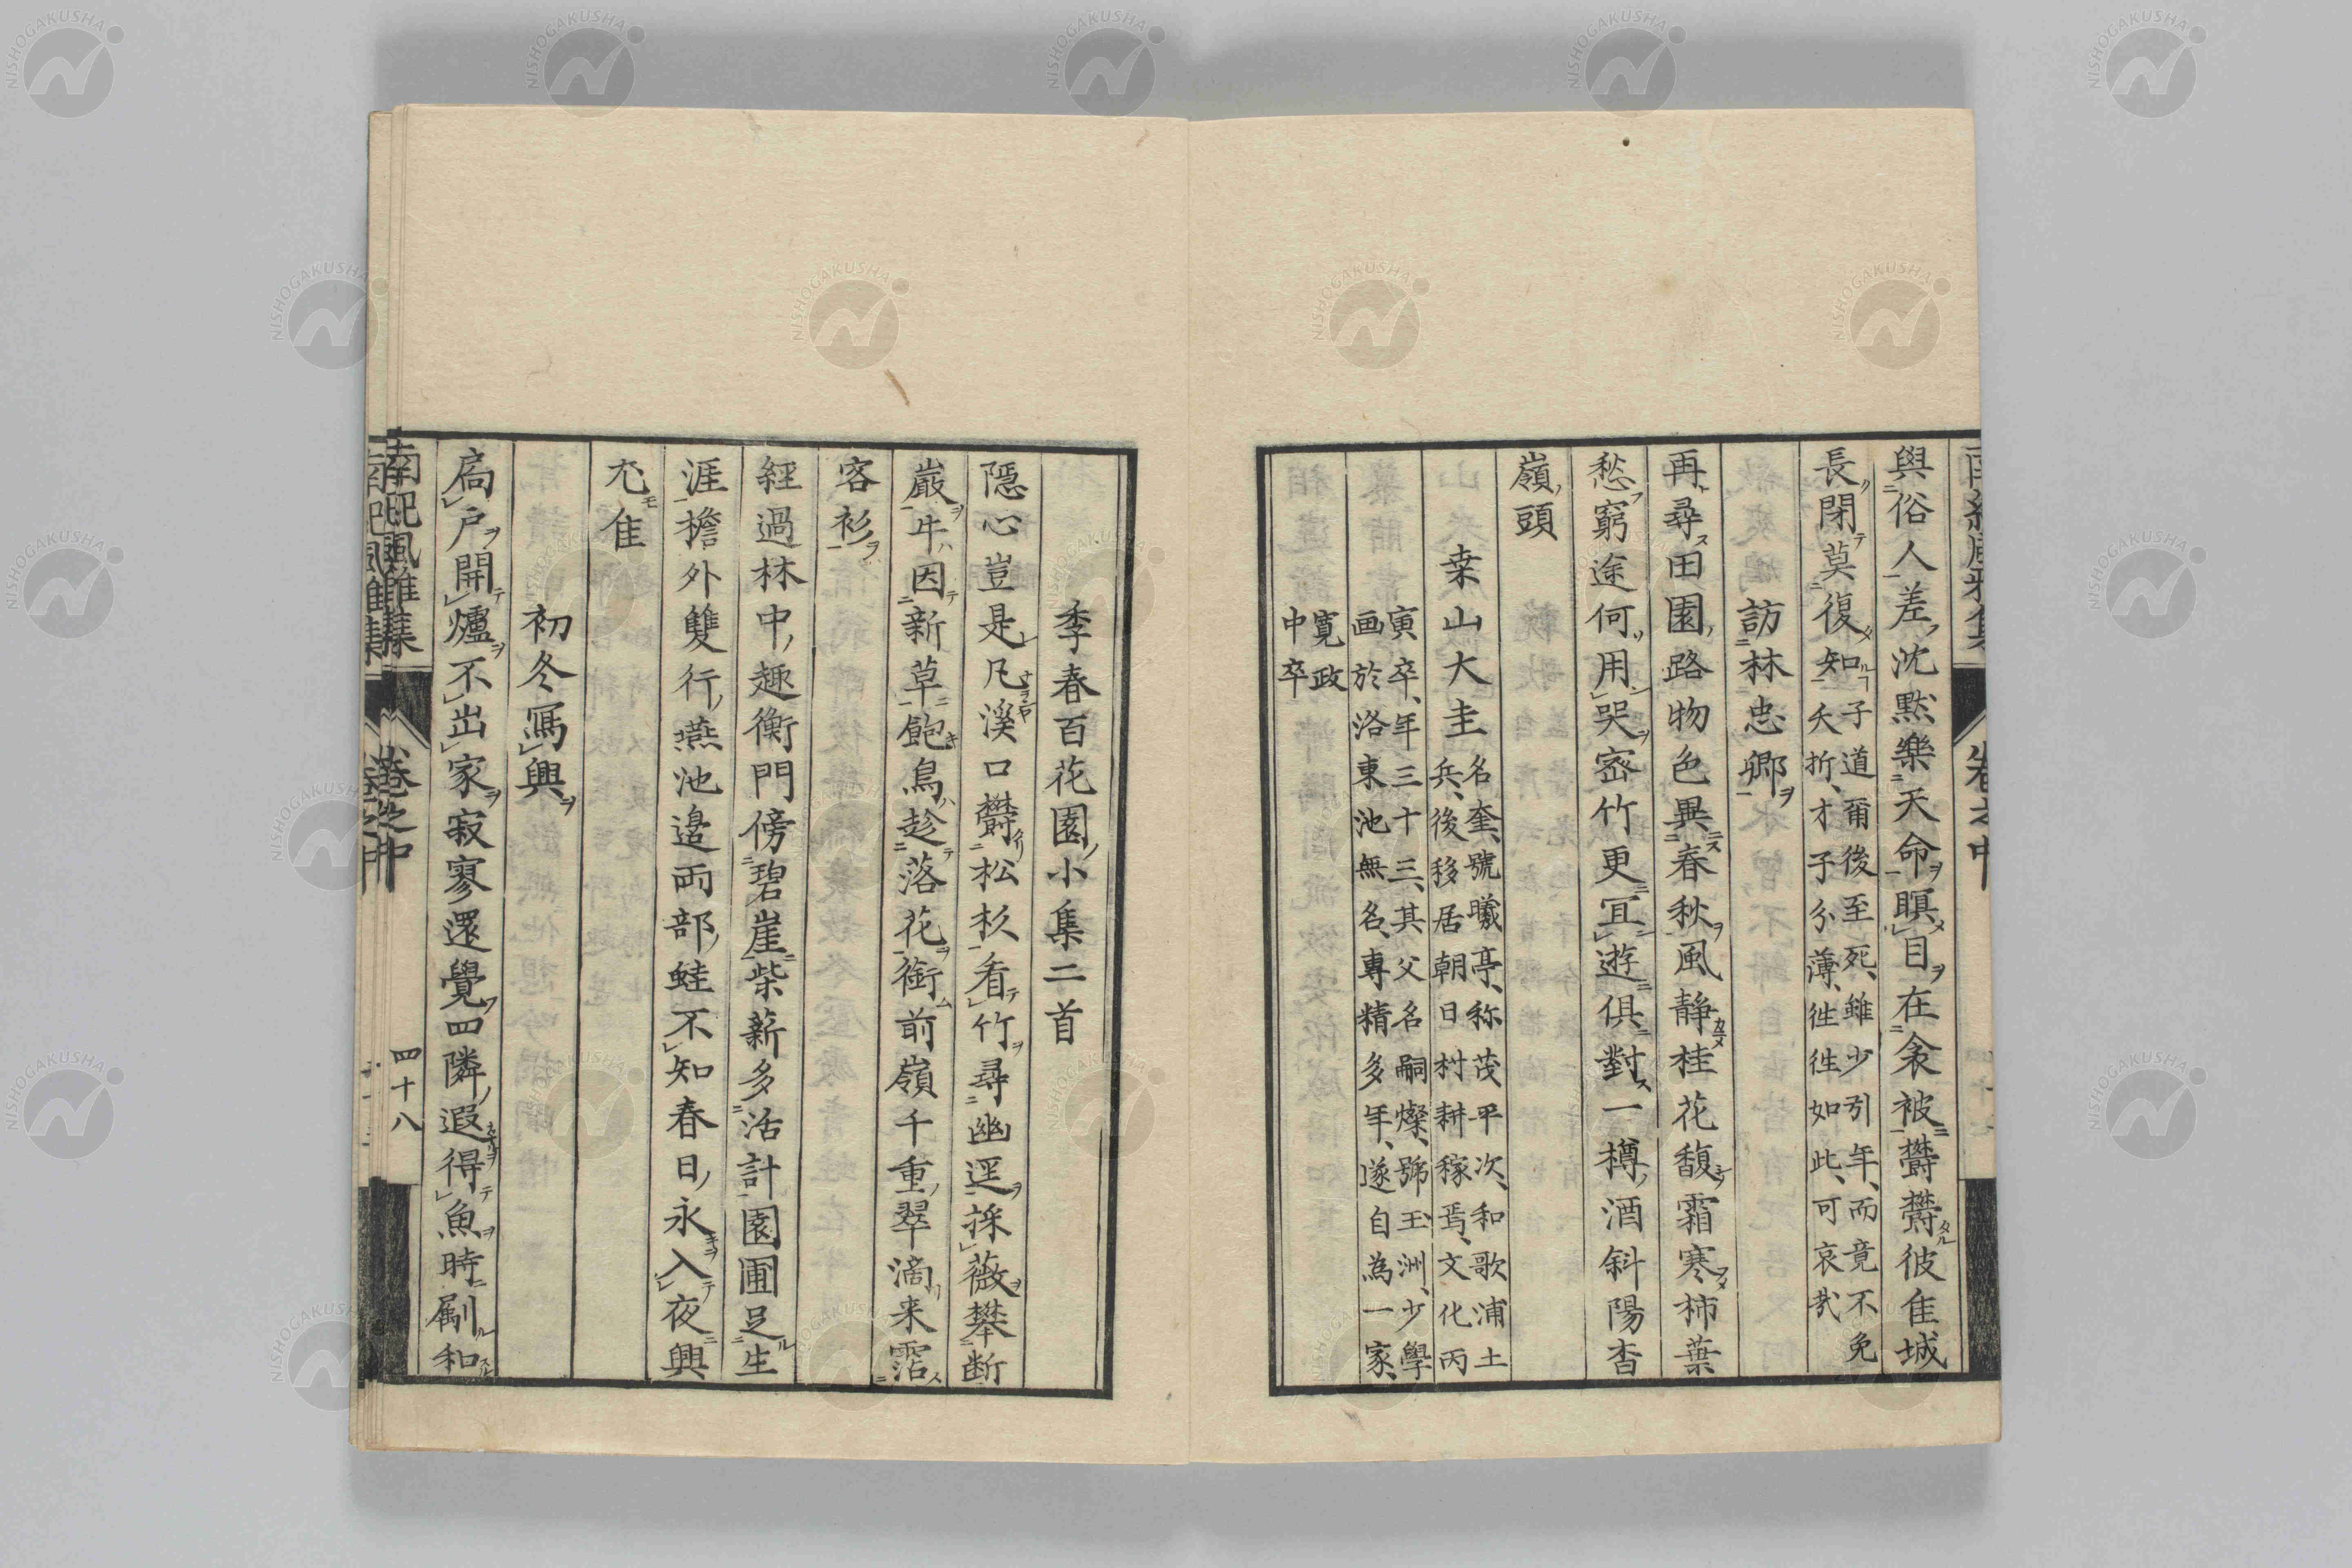 南紀風雅集 卷之中
與俗人差沈黙樂天命瞑目在衾被欝欝彼佳城
長閉莫復知
子道爾後至死、雖少引年、而竟不免
夭折、才子分薄、徃徃如此、可哀哉
訪林忠卿
再尋田園路物色異春秋風静桂花馥霜寒柿葉
愁窮途何用哭密竹更冝遊俱對一樽酒斜陽杳
嶺頭
桒山大圭
名奎、號曦亭、称茂平次、和歌浦士
兵、後移居朝日村耕稼焉、文化丙
寅卒、年三十三、其父名嗣燦、號玉洲、少學
画於洛東池無名、專精多年、遂自為一家、
寛政
中卒
季春百花園小集二首
隱心豈是凡溪口欝松杉看竹尋幽逕採薇攀断
巌牛因新草飽鳥趁落花銜前嶺千重翠滴来霑
客衫
経過林中趣衡門傍碧崖柴薪多活計園圃足生
涯檐外雙行燕池邉両部蛙不知春日永入夜興
尤佳
初冬寫興
扃户開爐不出家寂寥還覺四隣遐得魚時斸和
南紀風雅集 卷之中 四十八